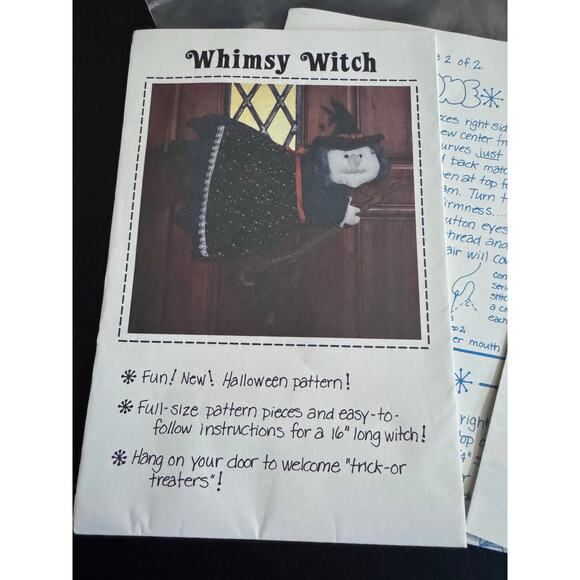 Whimsy Witch
* Fun! New! Halloween pattern!
* Full-size pattern pieces and easy-to-
follow instructions for a 16" long witch!
* Hang on your door to welcome "trick-or
treaters"!
2 of 2.
right sid
center fr
curves just
back mat
at top f
Turn t
firmness....
button eyes
thread and
hair will cov
stit
a c
each
mouth
right
top